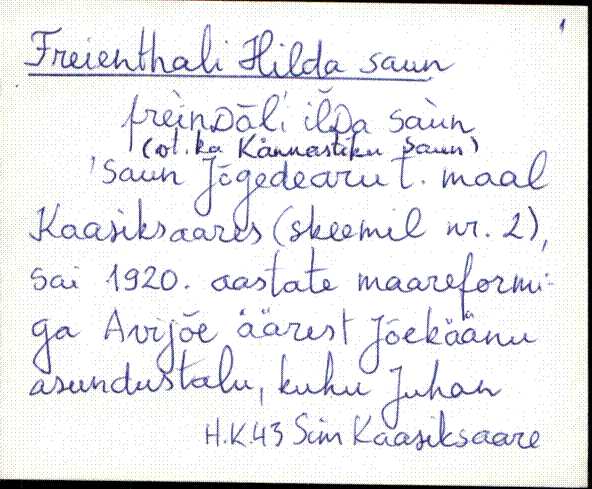 1
Freienthali Hilda saun
frèinDāl̀i ĭlDa saùn
(vt. ka Kännastiku saun)
Saun Jõgedearu t. maal
Kaasiksaares (skeemil nr. 2),
sai 1920. aastate maareformi-
ga Avijõe äärest Jõekäänu
asundustalu, kuhu Juhan
H.K.43 Sim Kaasiksaare